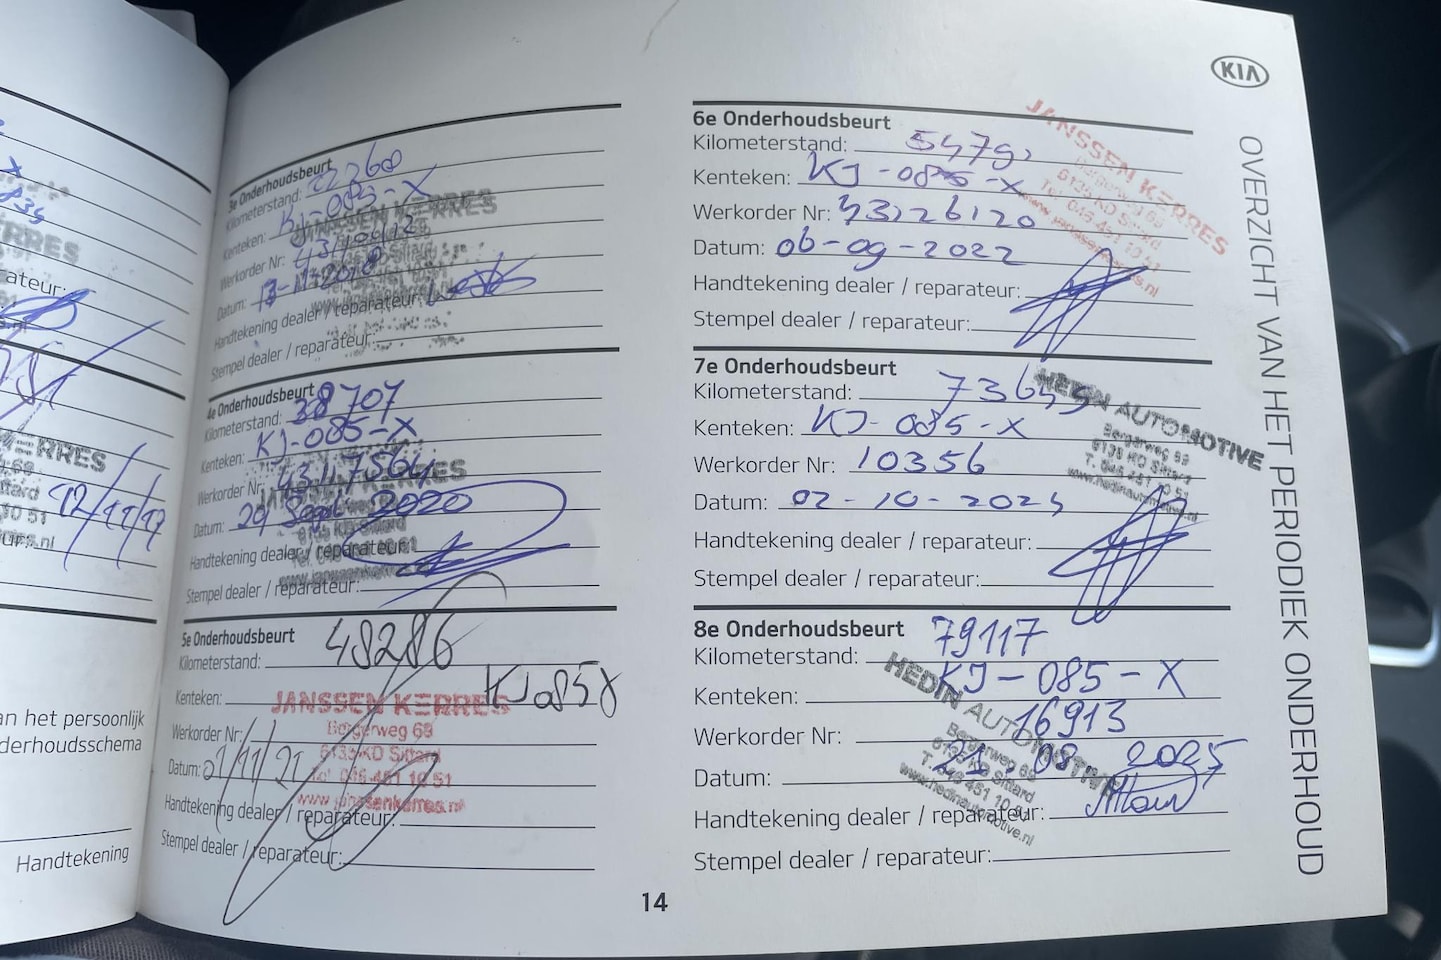 ateur:
12/11/17
an het persoonlijk
derhoudsschema
Handtekening
3e Onderhoudsbeurt
Kilometerstand: 22268
Kenteken: KJ-085-X
Werkorder Nr:
Datum:
Handtekening dealer / reparateur:
Stempel dealer / reparateur:
JANSSEN KERRES
4e Onderhoudsbeurt
Kilometerstand: 38707
Kenteken: KJ-085-X
Werkorder Nr:
Datum: 29 Sept 2020
Handtekening dealer / reparateur:
Stempel dealer / reparateur:
5e Onderhoudsbeurt
Kilometerstand: 48286
Kenteken: KJ085X
JANSSEN KERRES
Bergerweg 69
Werkorder Nr:
6135 KD Sittard
Datum: 01/11/21
Tel. 046-451 10 51
www.janssenkerres.nl
Handtekening dealer / reparateur:
Stempel dealer / reparateur:
14
KIA
OVERZICHT VAN HET PERIODIEK ONDERHOUD
6e Onderhoudsbeurt
Kilometerstand:
Kenteken: KJ-085-X
Werkorder Nr: 43126120
Datum: 06-09-2022
Handtekening dealer / reparateur:
Stempel dealer / reparateur:
JANSSEN KERRES
Bergerweg 69
6135 KD Sittard
Tel. 046-451 10 51
www.janssenkerres.nl
7e Onderhoudsbeurt
Kilometerstand:
Kenteken: KJ-085-X
Werkorder Nr: 10356
Datum: 02-10-202
Handtekening dealer / reparateur:
Stempel dealer / reparateur:
HEDIN AUTOMOTIVE
Bergerweg 69
6135 KD Sittard
T. 046 451 10 51
www.hedinautomotive.nl
8e Onderhoudsbeurt
Kilometerstand: 79117
Kenteken: KJ-085-X
Werkorder Nr: 16913
Datum: 21-08-2025
Handtekening dealer / reparateur:
Stempel dealer / reparateur:
HEDIN AUTOMOTIVE
Bergerweg 69
6135 KD Sittard
T. 046 451 10 51
www.hedinautomotive.nl